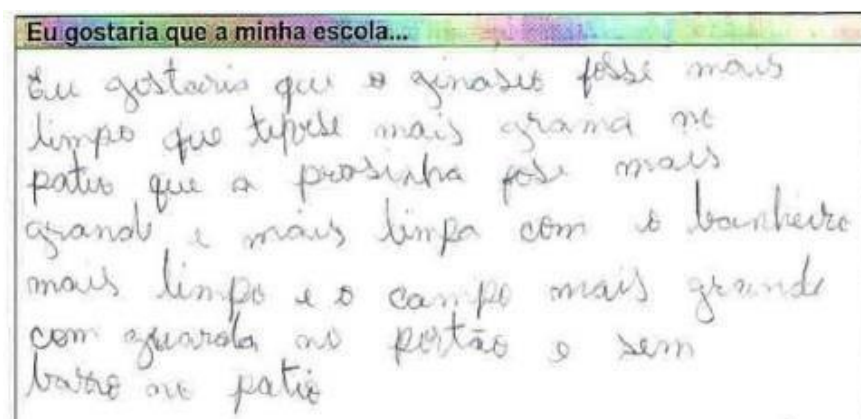 Eu gostaria que a minha escola...
Eu gostaria que o ginasio fosse mais
limpo que tivese mais grama no
patio que a prasinha fose mais
grande e mais limpa com o banheiro
mais limpo e o campo mais grande
com guarda no portão e sem
barro no patio